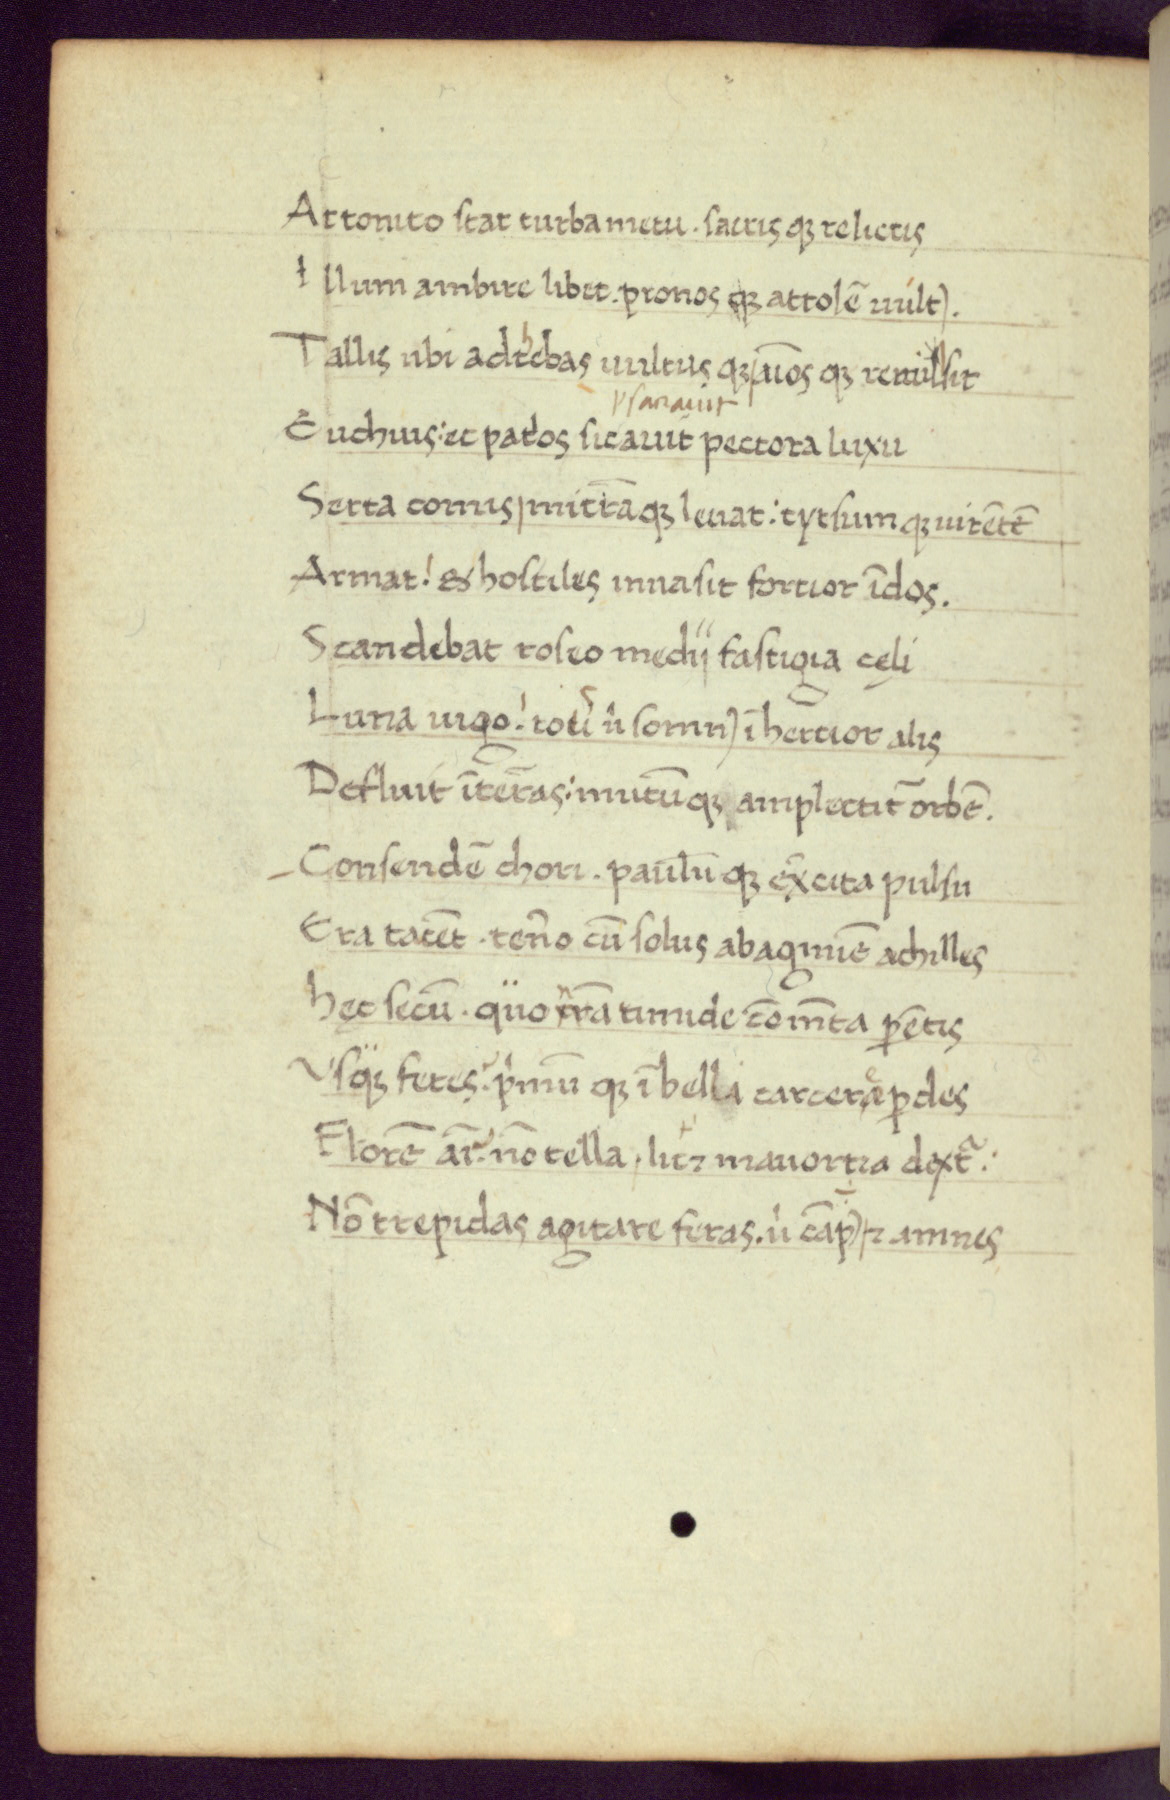 Attonito stat turba metu . sacris qꝫ relictis
Illum ambire libet . pronos qꝫ attolē uult).
Tallis ubi adthebas uultus qꝫ aīos qꝫ remulsit
ł sanauit
Euchius : et patͦos sicauit pectora luxu
Serta comis / mitrāqꝫ leuat : tyrsum qꝫ uirētē
Armat ! & hostiles inuasit fortior īdos .
Scandebat roseo medij fastigia cęli
Luna uigo ! totꝰ u̇ somn) ī hertior alis
Defluit īterras : mutū qꝫ amplectit̄ orbē .
Consendē chori . paulū qꝫ excita pulsu
Era tacēt . teñ̄o cū solus abagmīe achilles
hęc secū . quo nr̄a timide cōmēta pētis
Vsqꝫ feres ? pͥmū qꝫ ībellı carcere ꝑdes
Florē aī ? nō tella . lit⁊ mauortia dextᵃ :
Nō trepidas agitare feras . u̇ cāp) ⁊ amnes